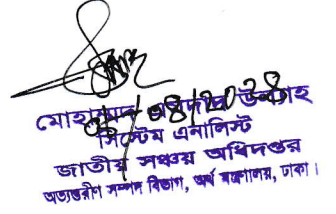 মোহাম্মদ উল্যাহ
সিস্টেম এনালিস্ট
জাতীয় সঞ্চয় অধিদপ্তর
অভ্যন্তরীণ সম্পদ বিভাগ, অর্থ মন্ত্রণালয়, ঢাকা।